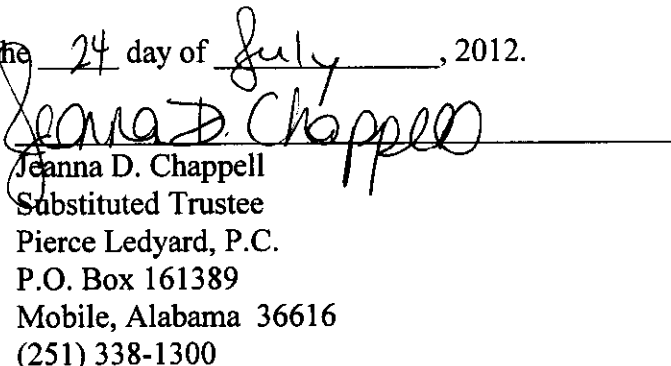 the 24 day of July, 2012.
Jeanna D. Chappell
Jeanna D. Chappell
Substituted Trustee
Pierce Ledyard, P.C.
P.O. Box 161389
Mobile, Alabama 36616
(251) 338-1300